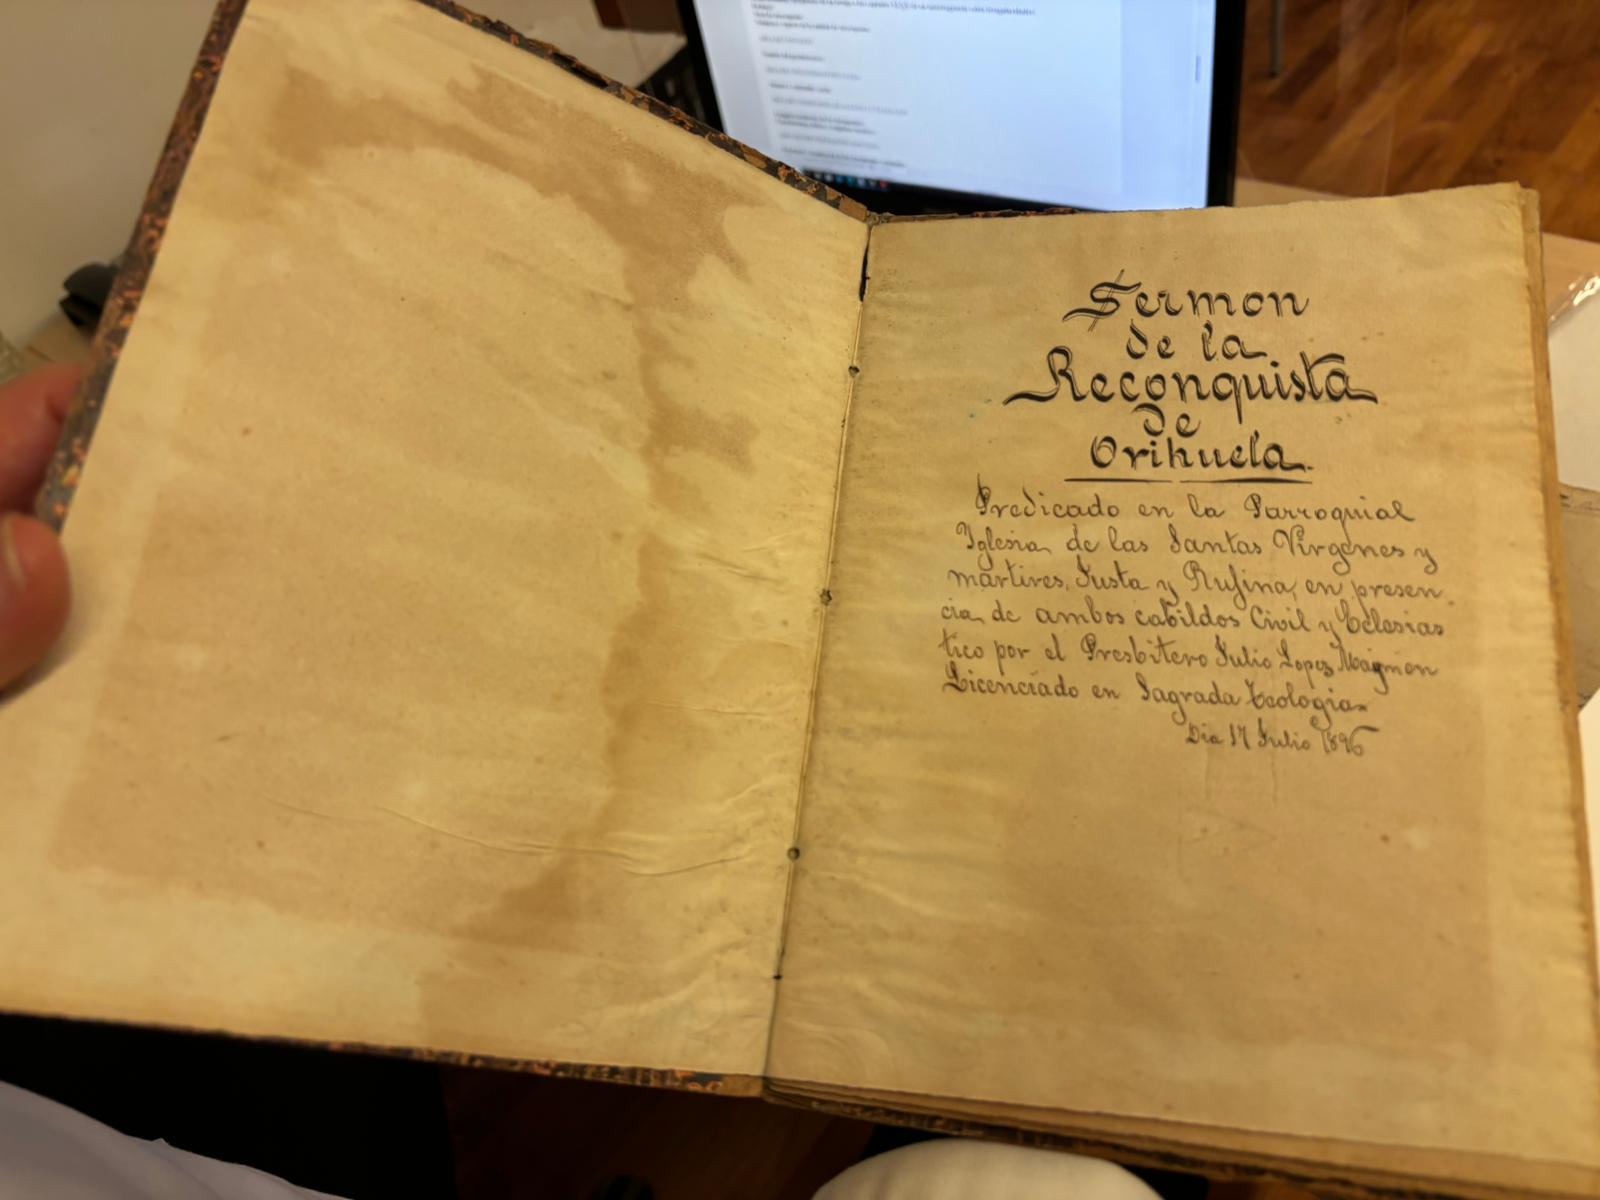 Sermon
de la
Reconquista
de
Orihuela.
Predicado en la Parroquial
Iglesia de las Santas Virgenes y
martires, Justa y Rufina, en presen
cia de ambos cabildos Civil y Eclesias
tico por el Presbitero Julio Lopez Maymon
Licenciado en Sagrada Teologia
Dia 17 Julio 1896